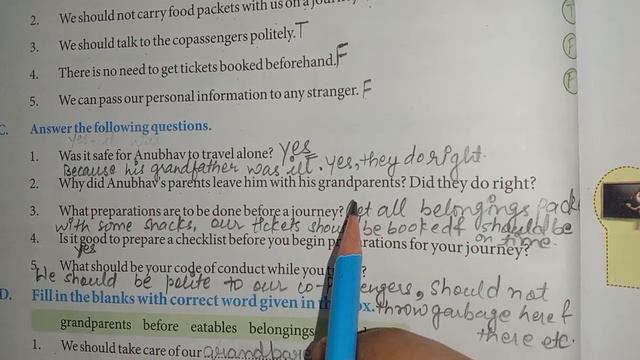 2. We should not carry food packets with us on a
3. We should talk to the copassengers politely. T
4. There is no need to get tickets booked beforehand. F
5. We can pass our personal information to any stranger. F
C. Answer the following questions.
1. Was it safe for Anubhav to travel alone? yes
Because his grandfather was ill. yes, they do right.
2. Why did Anubhav's parents leave him with his grandparents? Did they do right?
3. What preparations are to be done before a journey? Get all belongings pack
with some snacks, our tickets should be booked & should be
on time.
4. Is it good to prepare a checklist before you begin for your journey?
yes
5. What should be your code of conduct while you
We should be polite to our should not
throw garbage here &
there etc.
D. Fill in the blanks with correct word given in
grandparents before eatables belongings
1. We should take care of our